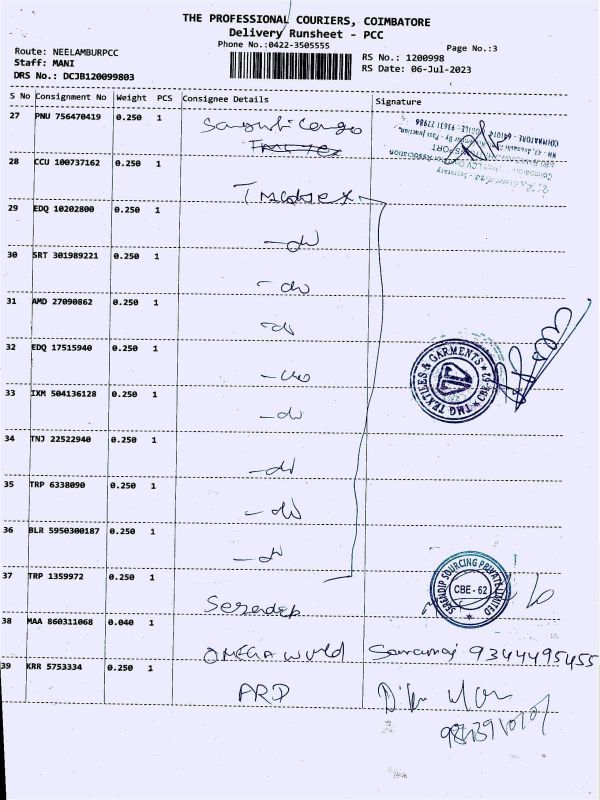 THE PROFESSIONAL COURIERS, COIMBATORE
Delivery Runsheet - PCC
Phone No.:0422-3505555
Page No.:3
Route: NEELAMBURPCC
Staff: MANI
DRS No.: DCJB120099803
RS No.: 1200998
RS Date: 06-Jul-2023
S No Consignment No Weight PCS Consignee Details Signature
27 PNU 756470419 0.250 1
28 CCU 100737162 0.250 1
29 EDQ 10202800 0.250 1 -do
30 SRT 301989221 0.250 1 -do
31 AMD 27090862 0.250 1 -do
32 EDQ 17515940 0.250 1 -do
TMG TEXTILES & GARMENTS CBE-62
33 IXM 504136128 0.250 1 -do
34 TNJ 22522940 0.250 1 -do
35 TRP 6338090 0.250 1 -do
36 BLR 5950300187 0.250 1 -do
37 TRP 1359972 0.250 1 Serendip
SERENDIP SOURCING PRIVATE LIMITED
CBE - 62
38 MAA 860311068 0.040 1 OMEGA World 9344495455
39 KRR 5753334 0.250 1 ARD